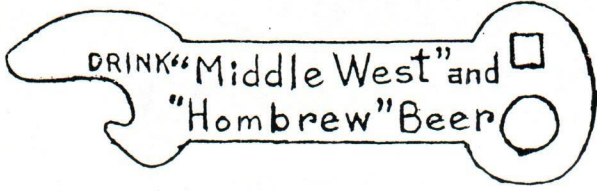 DRINK "Middle West" and
"Hombrew" Beer